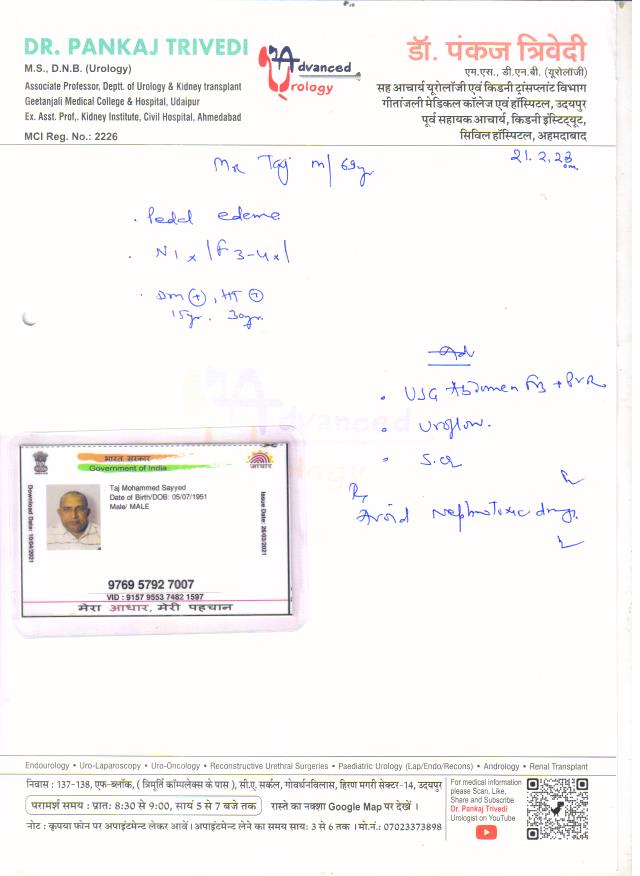 DR. PANKAJ TRIVEDI
M.S., D.N.B. (Urology)
Associate Professor, Deptt. of Urology & Kidney transplant
Geetanjali Medical College & Hospital, Udaipur
Ex. Asst. Prof,. Kidney Institute, Civil Hospital, Ahmedabad
MCI Reg. No.: 2226
Advanced
Urology
डॉ. पंकज त्रिवेदी
एम.एस., डी.एन.बी. (यूरोलॉजी)
सह आचार्य यूरोलॉजी एवं किडनी ट्रांसप्लांट विभाग
गीतांजली मेडिकल कॉलेज एवं हॉस्पिटल, उदयपुर
पूर्व सहायक आचार्य, किडनी इंस्टिट्यूट,
सिविल हॉस्पिटल, अहमदाबाद
21.2.23
Mr Taj M/69yr
. Pedal edema
. N1x |F3-4x|
. DM (+), HT (+)
15yr. 30yr.
Adv
. USG Abdomen FB + PVR
. Uroflow.
. S.cr
Rx
Avoid Nephrotoxic drugs.
भारत सरकार
Government of India
आधार
Download Date: 10/04/2021
Taj Mohammed Sayyed
Date of Birth/DOB: 05/07/1951
Male/ MALE
Issue Date: 26/03/2021
9769 5792 7007
VID : 9157 9553 7482 1597
मेरा आधार, मेरी पहचान
Endourology • Uro-Laparoscopy • Uro-Oncology • Reconstructive Urethral Surgeries • Paediatric Urology (Lap/Endo/Recons) • Andrology • Renal Transplant
निवास : 137-138, एफ-ब्लॉक, ( त्रिमूर्ति कॉम्पलेक्स के पास ), सी.ए. सर्कल, गोवर्धनविलास, हिरण मगरी सेक्टर-14, उदयपुर
परामर्श समय : प्रात: 8:30 से 9:00, सायं 5 से 7 बजे तक रास्ते का नक्शा Google Map पर देखें ।
नोट : कृपया फोन पर अपाइंटमेन्ट लेकर आवें । अपाइंटमेन्ट लेने का समय सायं: 3 से 6 तक । मो.नं.: 07023373898
For medical information
please Scan, Like,
Share and Subscribe
Dr. Pankaj Trivedi
Urologist on YouTube